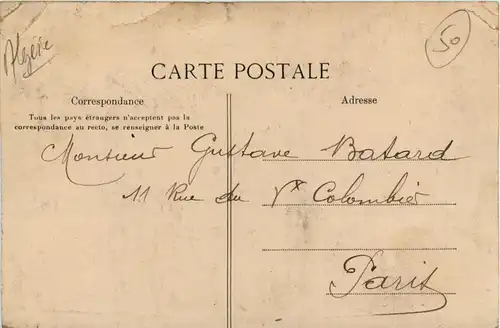 Algérie
50
CARTE POSTALE
Correspondance
Adresse
Tous les pays étrangers n'acceptent pas la
correspondance au recto, se renseigner à la Poste
Monsieur Gustave Batard
11 Rue du Vx Colombier
Paris